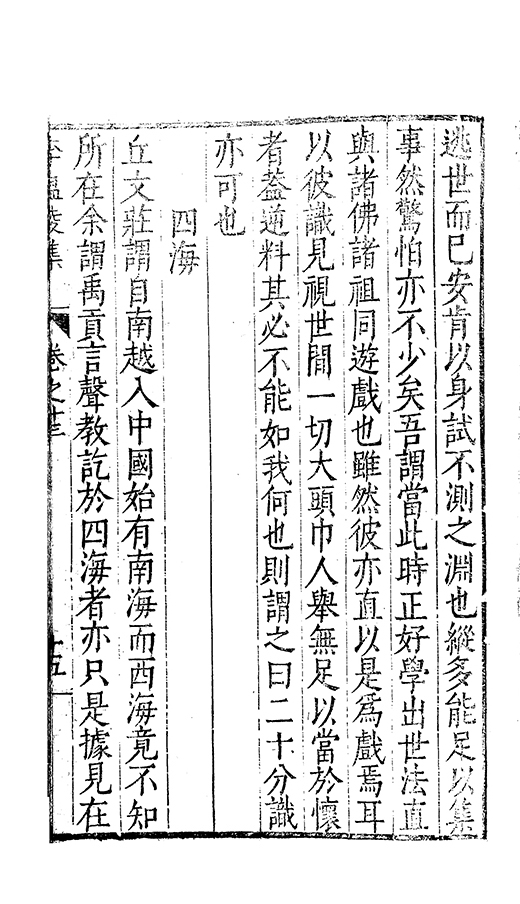 逃世而已安肯以身試不測之淵也縱多能足以集
事然驚怕亦不少矣吾謂當此時正好學出世法直
與諸佛諸祖同遊戲也雖然彼亦直以是爲戲焉耳
以彼識見視世間一切大頭巾人舉無足以當於懷
者蓋逆料其必不能如我何也則謂之曰二十分識
亦可也
四海
丘文莊謂自南越入中國始有南海而西海竟不知
所在余謂禹貢言聲教訖於四海者亦只是據見在
李溫陵集 卷之十三 十五